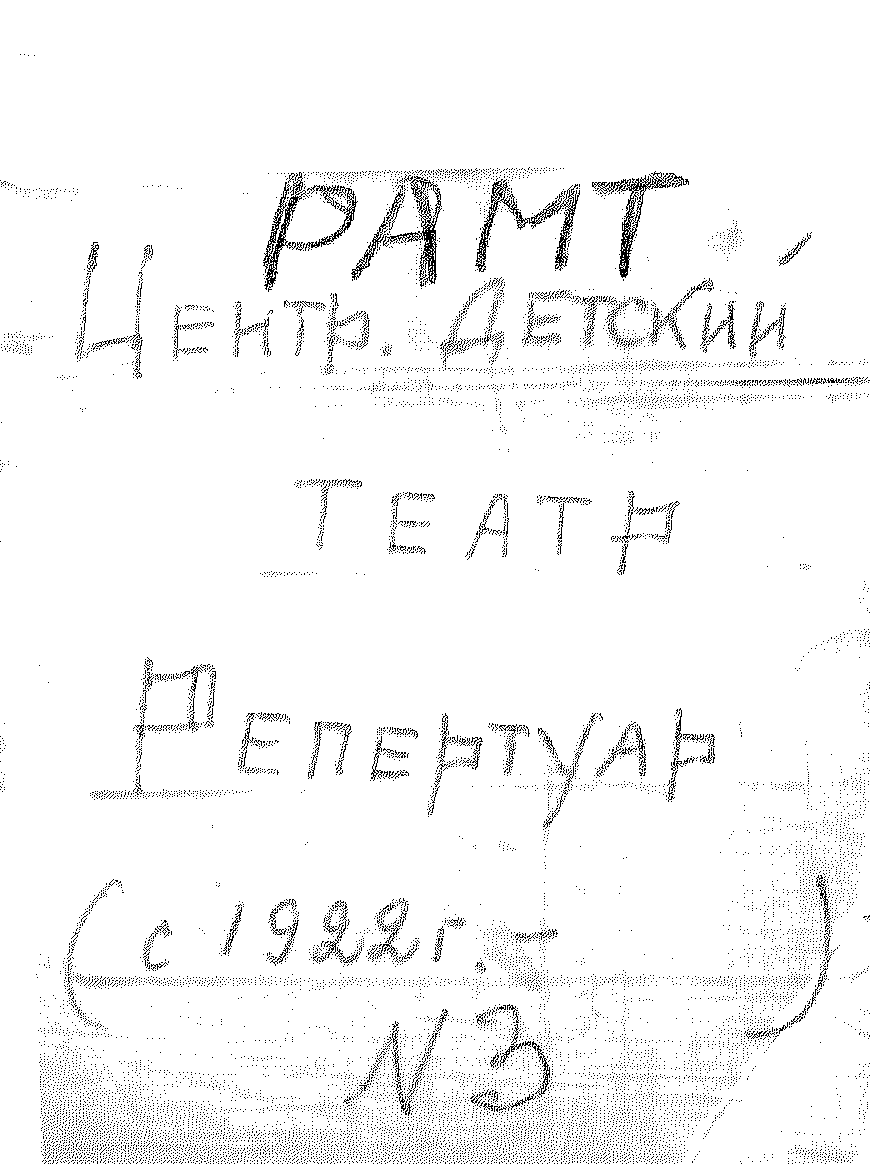 РАМТ
Центр. Детский
Театр
Репертуар
(с 1922г. – )
N 3